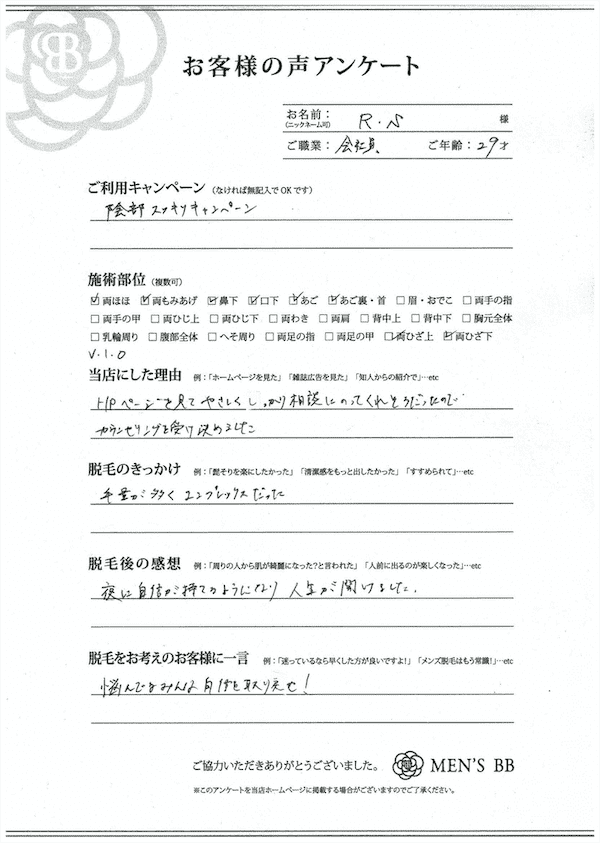 BB
お客様の声アンケート
お名前:
(ニックネーム可)
R・N 様
ご職業: 会社員 ご年齢: 29才
ご利用キャンペーン (なければ無記入でOKです)
陰部スッキリキャンペーン
施術部位 (複数可)
☑両ほほ ☑両もみあげ ☑鼻下 ☑口下 ☑あご ☑あご裏・首 □眉・おでこ □両手の指
□両手の甲 □両ひじ上 □両ひじ下 □両わき □両肩 □背中上 □背中下 □胸元全体
□乳輪周り □腹部全体 □へそ周り □両足の指 □両足の甲 ☑両ひざ上 ☑両ひざ下
V.I.O
当店にした理由 例:「ホームページを見た」「雑誌広告を見た」「知人からの紹介で」…etc
HPページを見てやさしくしっかり相談にのってくれそうだったので
カウンセリングを受け決めました
脱毛のきっかけ 例:「髭そりを楽にしたかった」「清潔感をもっと出したかった」「すすめられて」…etc
毛量が多くコンプレックスだった
脱毛後の感想 例:「周りの人から肌が綺麗になった?と言われた」「人前に出るのが楽しくなった」…etc
夜に自信が持てるようになり 人生が開けました.
脱毛をお考えのお客様に一言 例:「迷っているなら早くした方が良いですよ!」「メンズ脱毛はもう常識!」…etc
悩んでるみんな 自信を取り戻せ!
ご協力いただきありがとうございました。 MEN'S BB
※このアンケートを当店ホームページに掲載する場合がございますのでご了承ください。